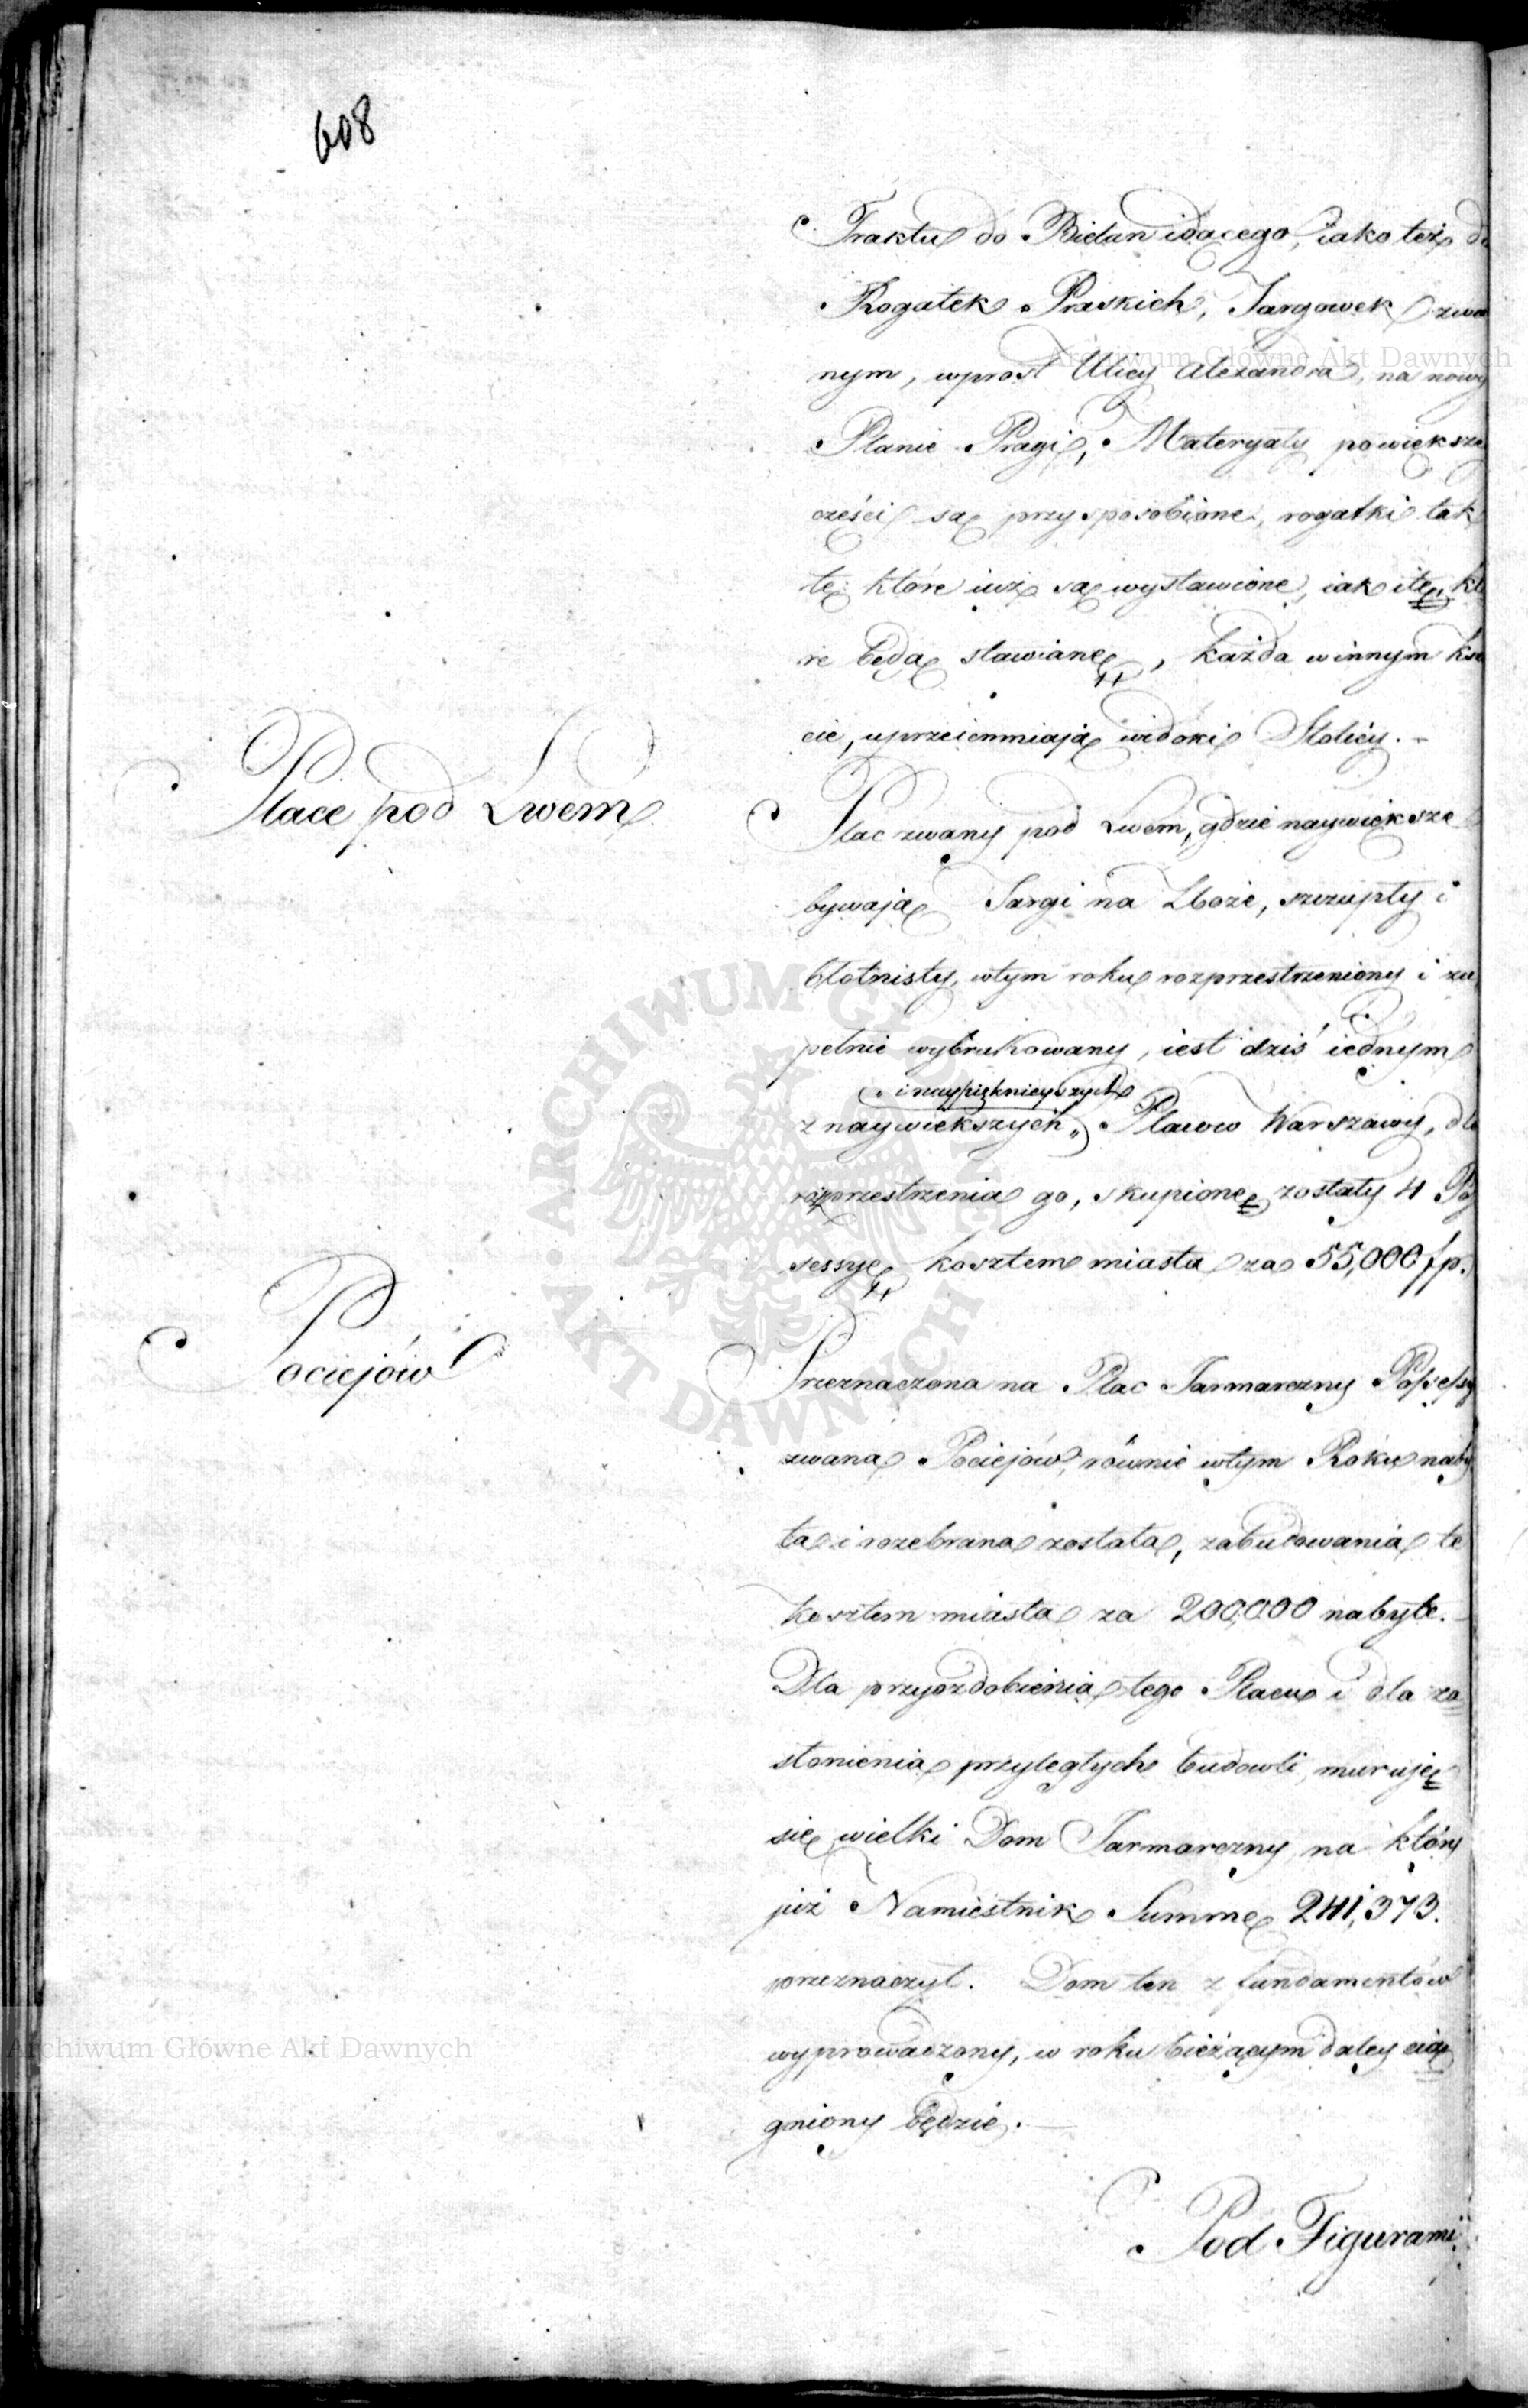 608
Traktu do Bielan idącego, iako też do
Rogatek Praskich, Targowek zwa
nym, wprost Ulicy Alexandra, na nowy
Planie Pragi, Materyały powiększe
części są przysposobione, rogatki tak
te które iuż są wystawione, iak i te, kt
re będą stawiane, każda w innym ksz
cie, uprzeiemniają widoki Stolicy. –
Place pod Lwem
Plac zwany pod Lwem, gdzie naywiększe
bywają Targi na Zboże, szczupły i
błotnisty, w tym roku rozprzestrzeniony i zu
pełnie wybrukowany, iest dziś iednym
i naypięknieyszych
z naywiększych „ Placow Warszawy, dla
rozprzestrzenia go, skupione zostały 4 Po
sessye kosztem miasta za 55,000 fp.
Pociejów
Przeznaczona na Plac Jarmarczny Possessy
zwana Pociejów, równie w tym Roku naby
ta i rozebrana została, zabudowania te
kosztem miasta za 200,000 nabyte. –
Dla przyozdobienia tego Placu i dla za
słonienia przyległych budowli, muruje
się wielki Dom Jarmarczny na który
już Namiestnik Summę 241,373.
przeznaczył. Dom ten z fundamentów
wyprowadzony, w roku bieżącym daley cią
gniony będzie. –
Pod Figurami
Archiwum Główne Akt Dawnych
Archiwum Główne Akt Dawnych
ARCHIWUM GŁÓWNE AKT DAWNYCH